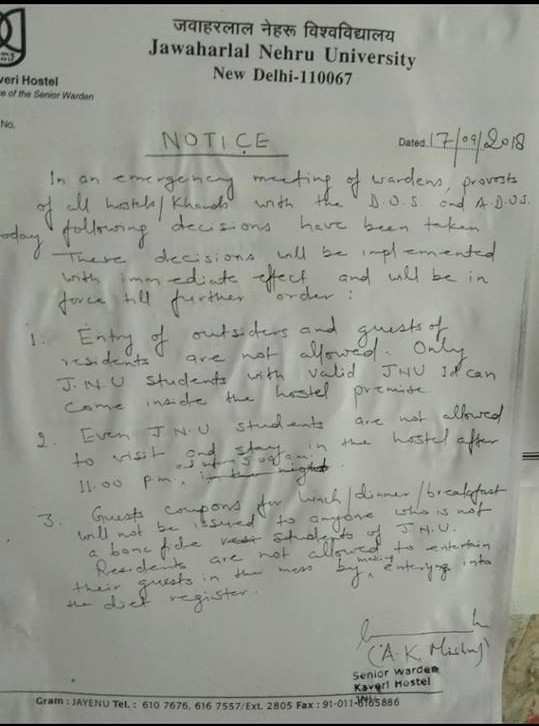 जवाहरलाल नेहरू विश्वविद्यालय
Jawaharlal Nehru University
New Delhi-110067
veri Hostel
e of the Senior Warden
No.
NOTICE
Dated 17/09/2018
In an emergency meeting of wardens, provosts
of all hostels/Khands with the D.O.S. and A.D.O.S.
oday following decisions have been taken
These decisions will be implemented
with immediate effect and will be in
force till further order :
1. Entry of outsiders and guests of
residents are not allowed. Only
J.N.U students with valid JNU Id can
come inside the hostel premise.
2. Even J.N.U. students are not allowed
to visit and stay in the hostel after
11.00 p.m.,
3. Guests coupons for lunch/dinner/breakfast
will not be issued to anyone who is not
a bona fide students of J.N.U.
Residents are not allowed to entertain
their guests in the mess by making entrying into
the diet register.
(A.K. Mishra)
Senior Warden
Kaveri Hostel
JNU
Gram : JAYENU Tel. : 610 7676, 616 7557/Ext. 2805 Fax : 91-011-6165886